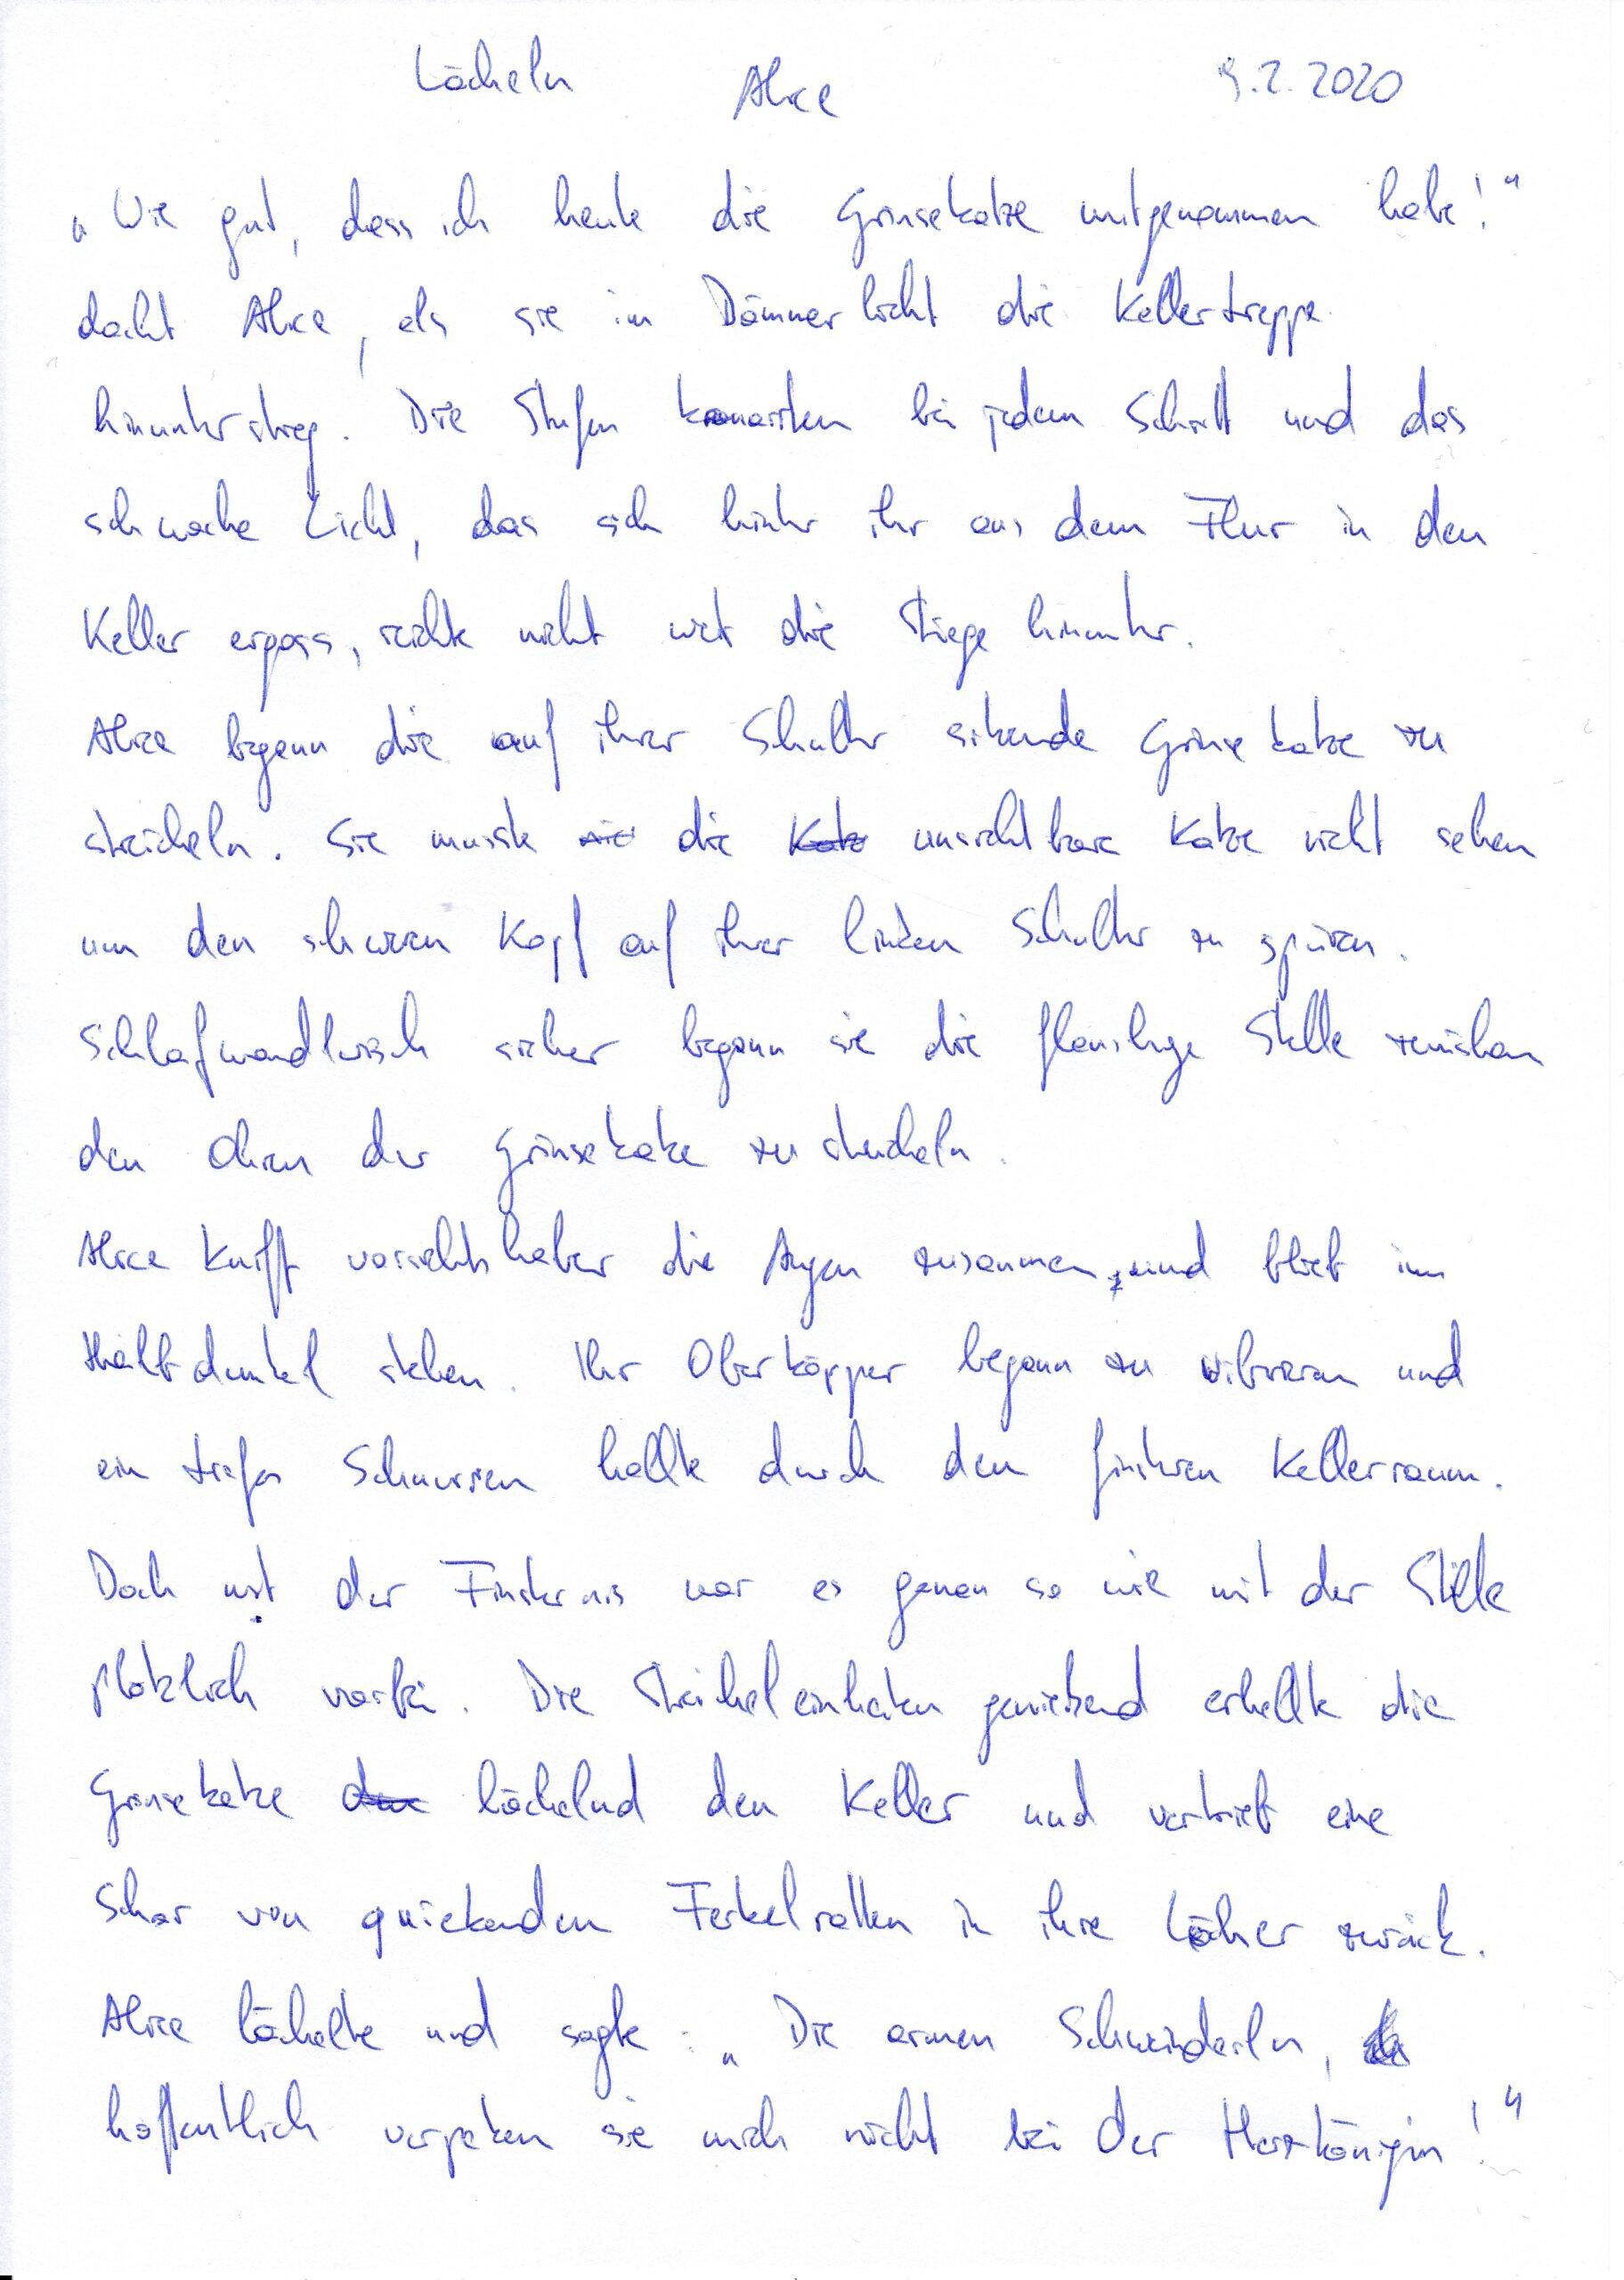 Lächeln Alice 9.2.2020
„Wie gut, dass ich heute die Grinsekatze mitgenommen habe!“
dacht Alice, als sie im Dämmerlicht die Kellertreppe
hinunterstieg. Die Stufen knarrten bei jedem Schritt und das
schwache Licht, das sich hinter ihr aus dem Flur in den
Keller ergoss, reichte nicht weit die Stiege hinunter.
Alice begann die auf ihrer Schulter sitzende Grinsekatze zu
streicheln. Sie musste die unsichtbare Katze nicht sehen
um den schweren Kopf auf ihrer linken Schulter zu spüren.
Schlafwandlerisch sicher begann sie die flauschige Stelle zwischen
den Ohren der Grinsekatze zu streicheln.
Alice kniff vorsichtshalber die Augen zusammen und blieb im
Halbdunkel stehen. Ihr Oberkörper begann zu vibrieren und
ein tiefes Schnurren hallte durch den finsteren Kellerraum.
Doch mit der Finsternis war es genau so wie mit der Stille
plötzlich vorbei. Die Streicheleinheiten genießend erhellte die
Grinsekatze lächelnd den Keller und vertrieb eine
Schar von quiekenden Ferkelratten in ihre Löcher zurück.
Alice lächelte und sagte: „Die armen Schweinderln,
hoffentlich verpetzen sie mich nicht bei der Herzkönigin!“